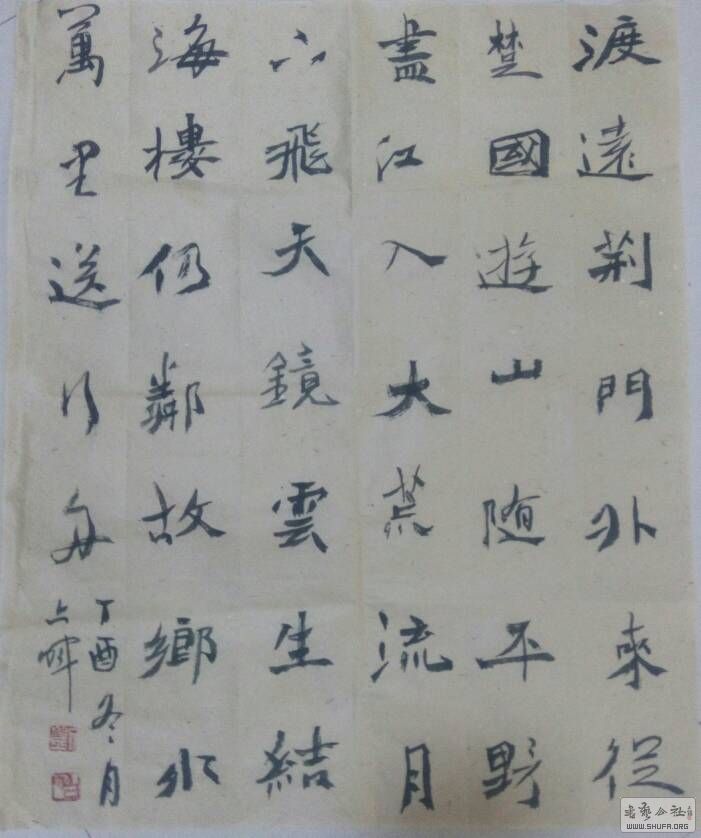 渡遠荆門外來從
楚國遊山随平野
盡江入大荒流月
下飛天鏡雲生結
海樓仍鄰故鄉水
萬里送行舟
丁酉冬月
书艺公社
WWW.SHUFA.ORG